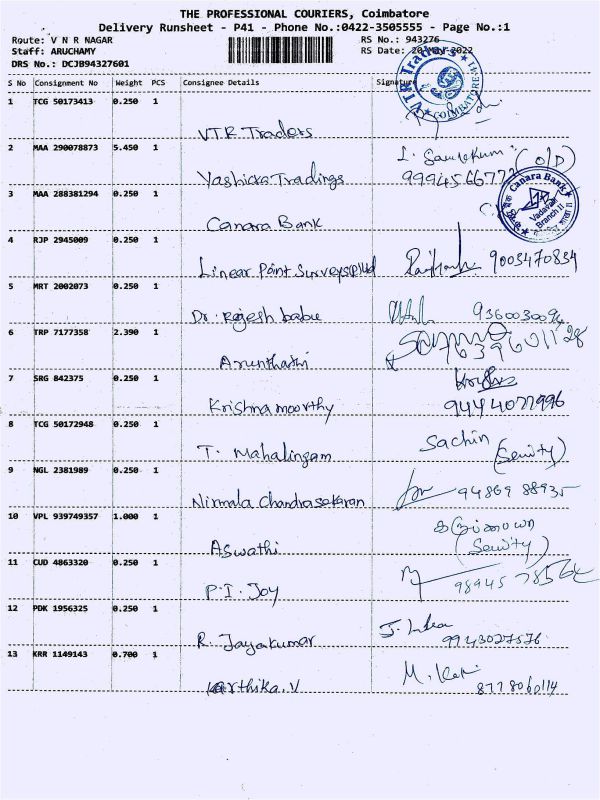 THE PROFESSIONAL COURIERS, Coimbatore
Delivery Runsheet - P41 - Phone No.:0422-3505555 - Page No.:1
Route: V N R NAGAR RS No.: 943276
Staff: ARUCHAMY RS Date: 20 May 2022
DRS No.: DCJB94327601
S No Consignment No Weight PCS Consignee Details Signature
VTR Traders
COIMBATORE
1 TCG 50173413 0.250 1
VTR Traders
2 MAA 290078873 5.450 1
Yashicka Tradings (O/D)
Canara Bank
Vadavalli
Branch II
3 MAA 288381294 0.250 1
Canara Bank
4 RJP 2945009 0.250 1
Linear Point Surveys(P)Ltd 9003470834
5 MRT 2002073 0.250 1
Dr. Rajesh babu
6 TRP 7177358 2.390 1
Arunthathi
7 SRG 842375 0.250 1
Krishna moorthy 9444077996
8 TCG 50172948 0.250 1
T. Mahalingam Sachin
9 NGL 2381989 0.250 1
Nirmala Chandrasekaran 94869 88935
10 VPL 939749357 1.000 1
Aswathi
11 CUD 4863320 0.250 1
P.I. Joy
12 PDK 1956325 0.250 1
R. Jayakumar 9943027576
13 KRR 1149143 0.700 1
Karthika.V 8778060114